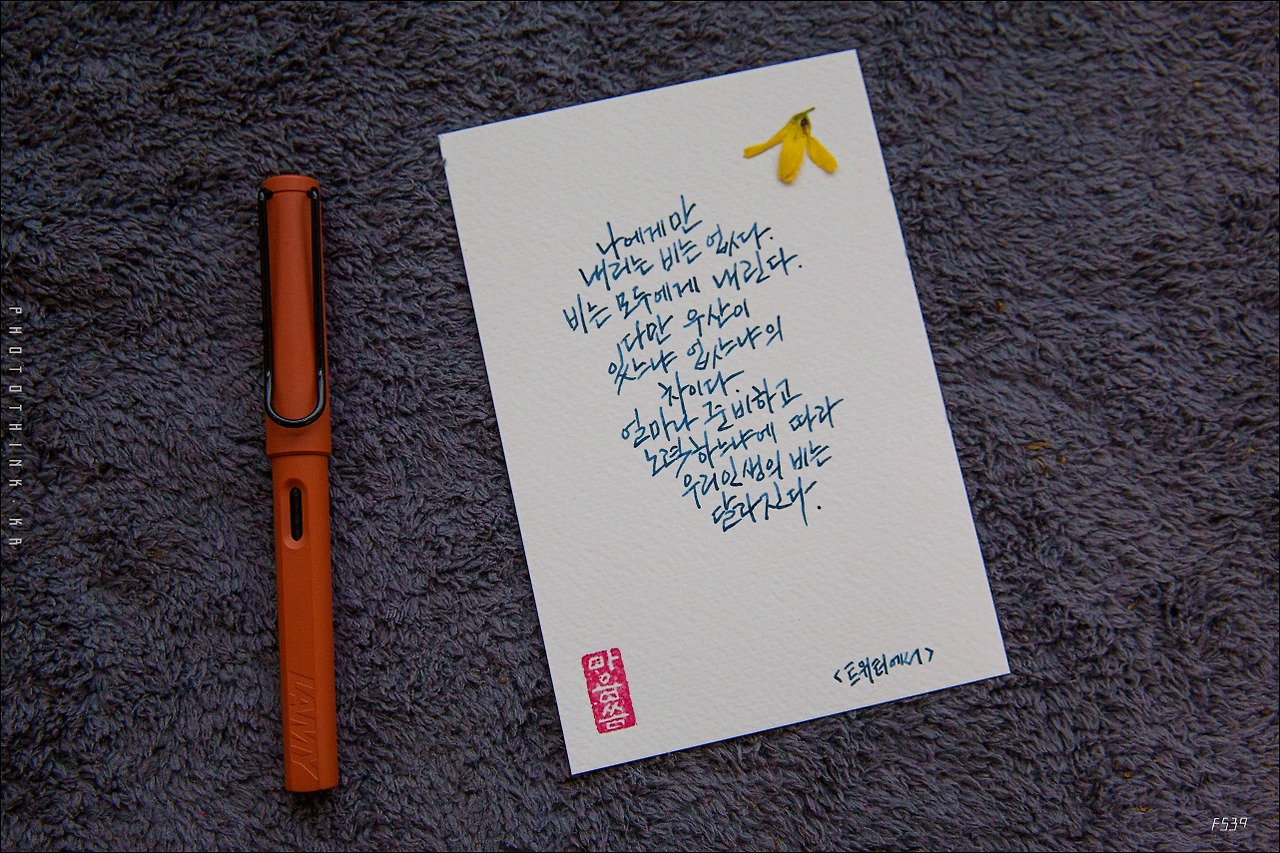 나에게만
내리는 비는 없다.
비는 모두에게 내린다.
다만 우산이
있느냐 없느냐의
차이다.
얼마나 준비하고
노력하느냐에 따라
우리인생의 비는
달라진다.
<트위터에서>
마음씀
LAMY
PHOTOTHINK.KR
FS39